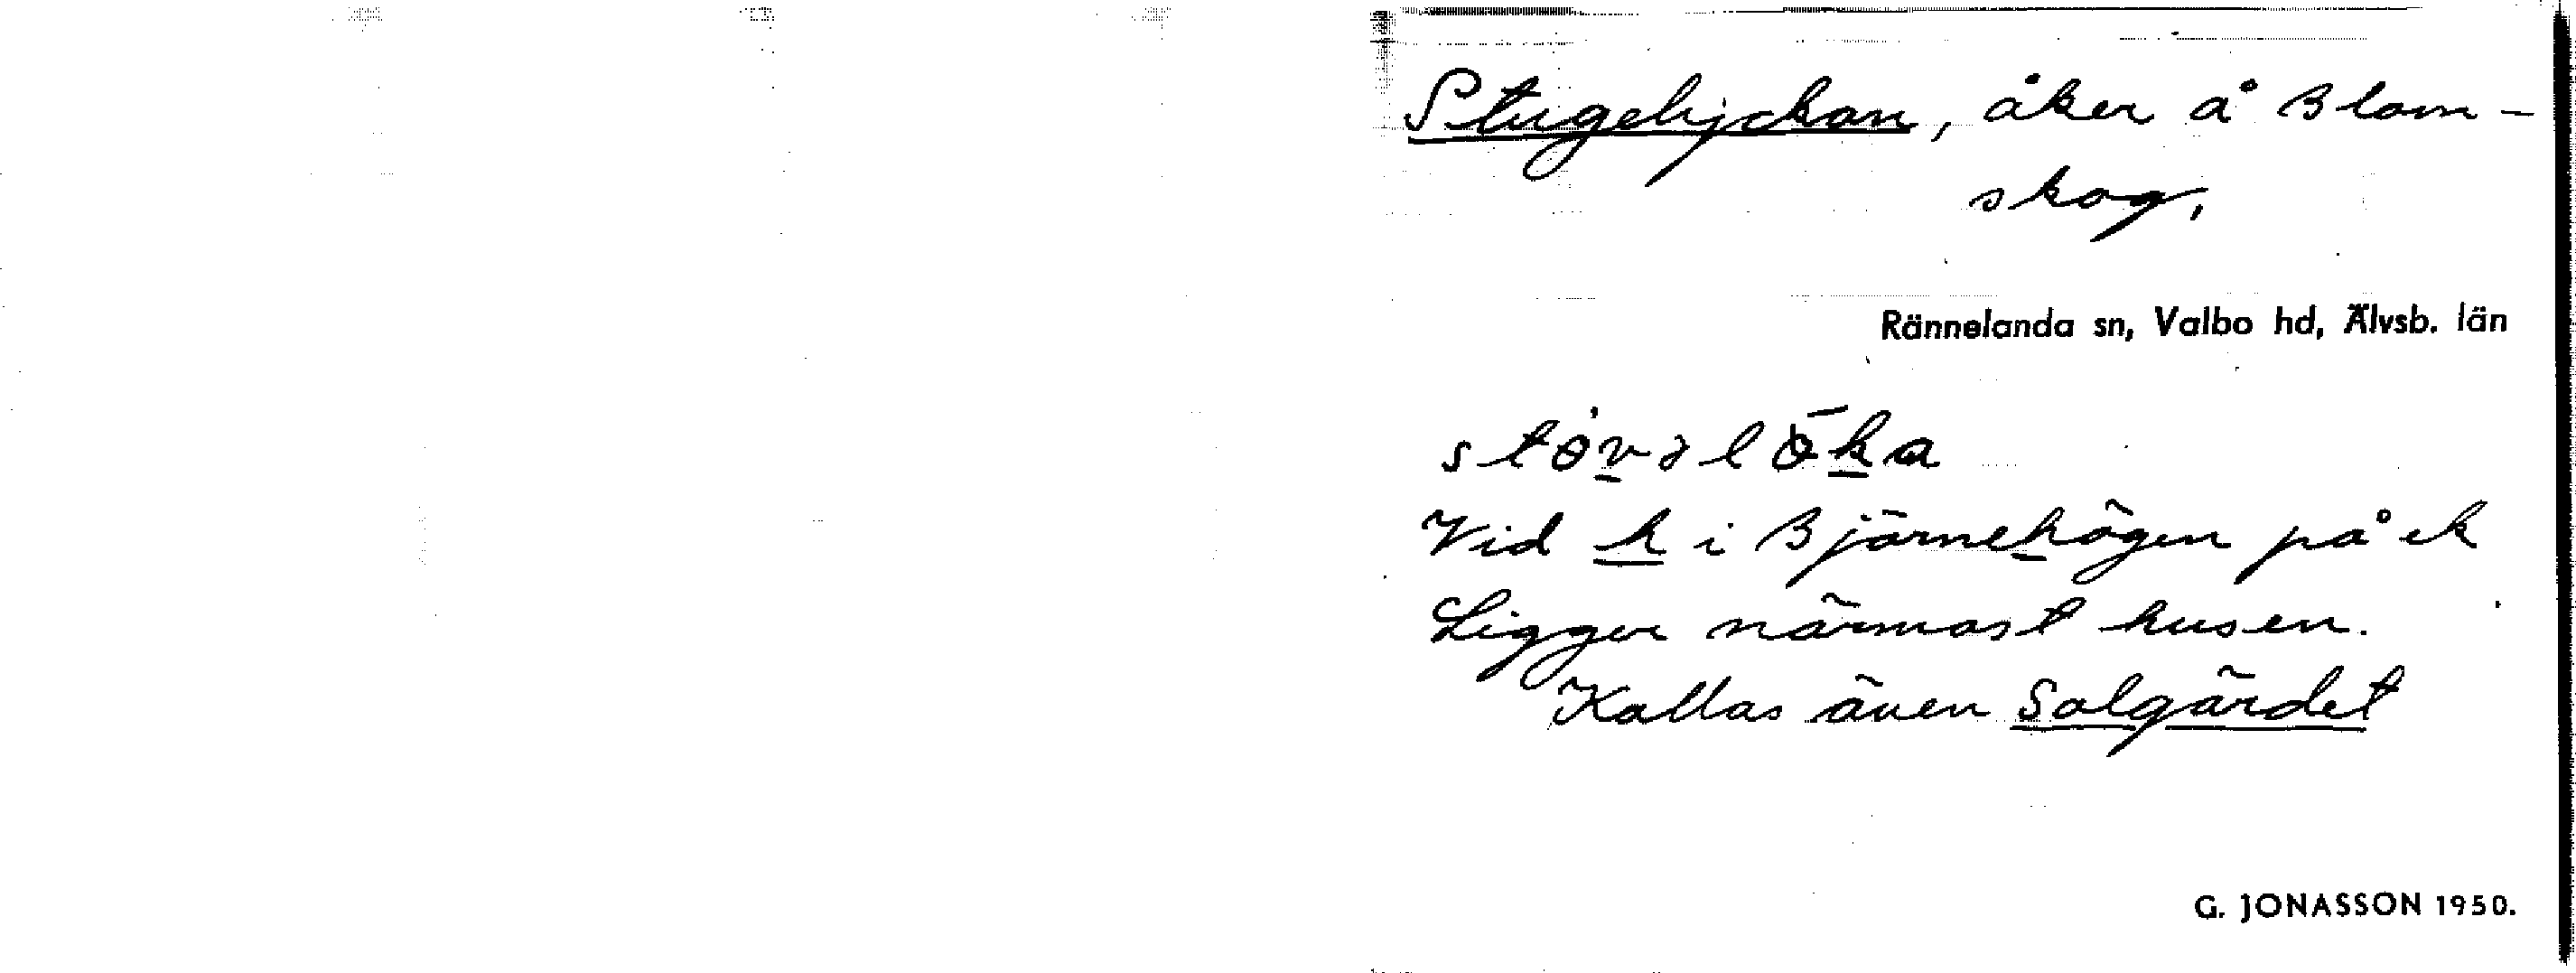 Stugelyckan, åker å Blom-
skog,
Rännelanda sn, Valbo hd, Älvsb. län
stövəlöka
Vid h i Björnehögen på ek
Ligger närmast husen.
Kallas även Solgärdet
G. JONASSON 1950.